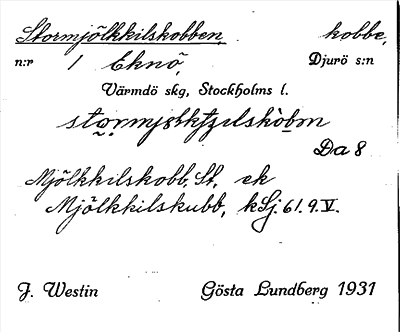 Stormjölkkilskobben, kobbe,
n:r 1 Eknö, Djurö s:n
Värmdö skg, Stockholms l.
Da 8
Mjölkkilskobb, St, ek
Mjölkkilskubb, kSj. 61.9.V.
J. Westin Gösta Lundberg 1931